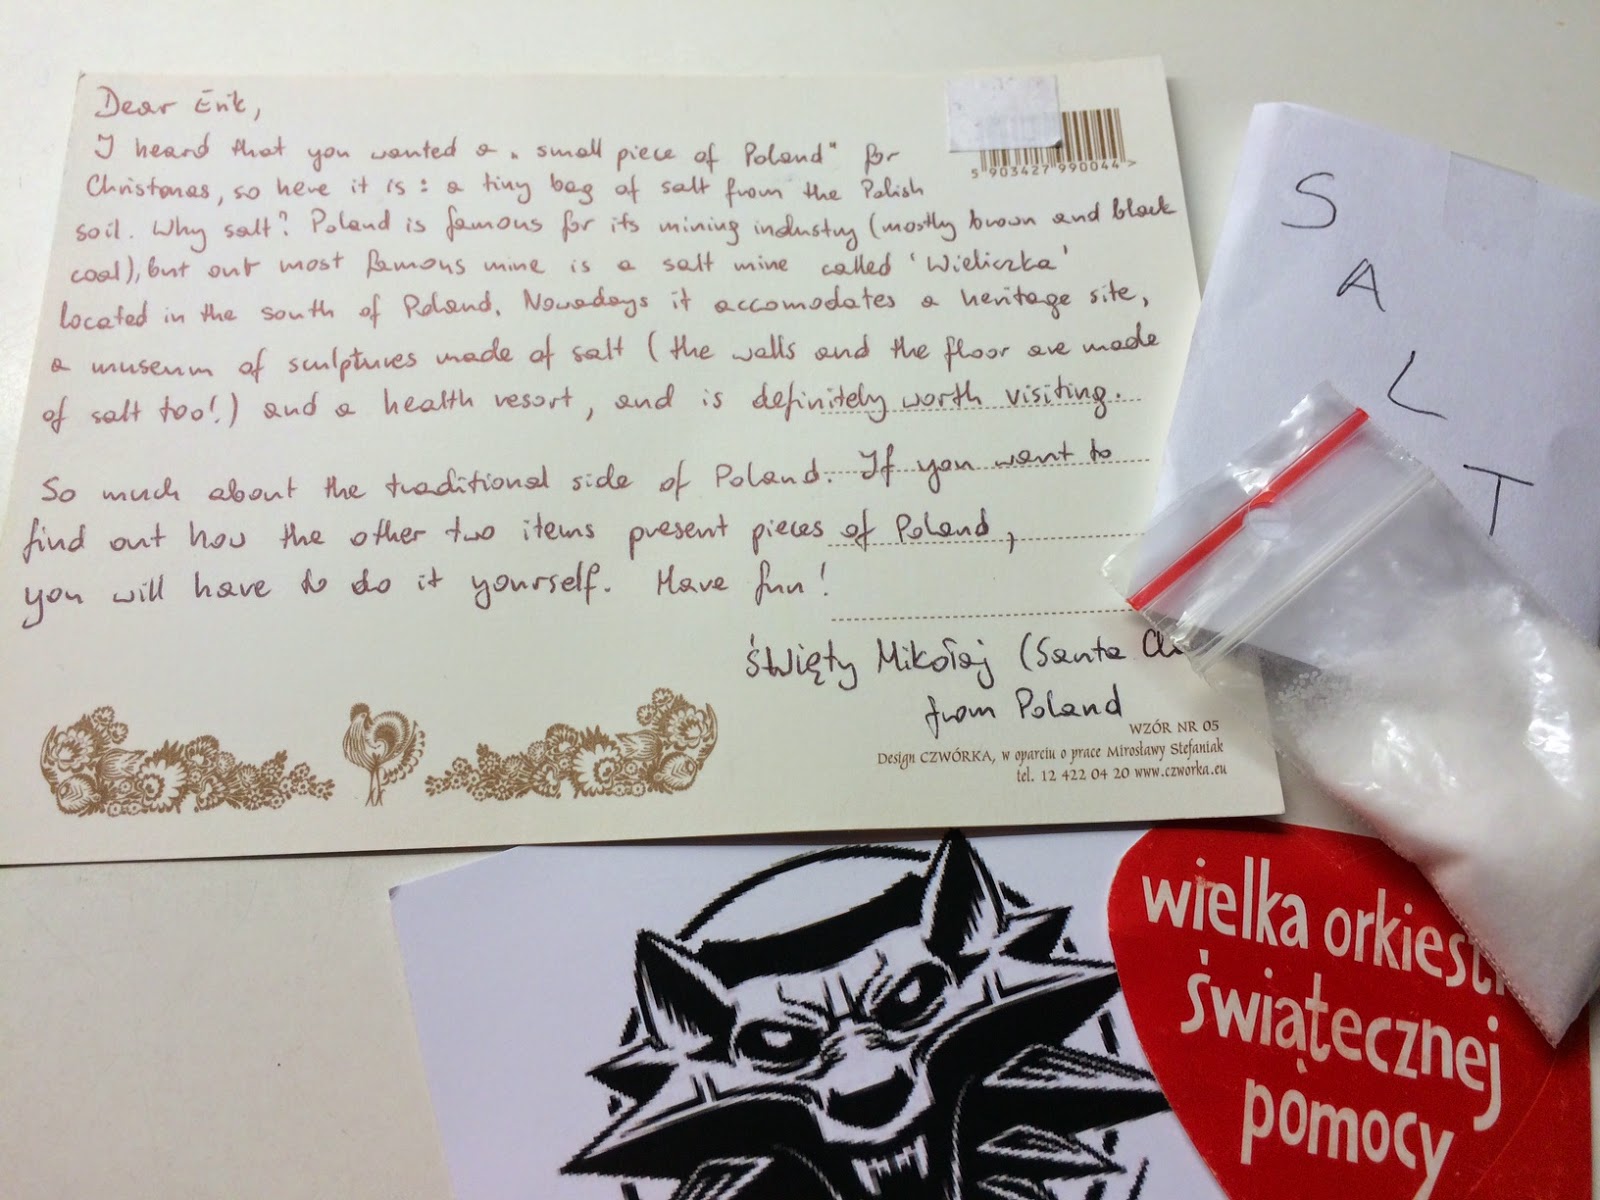 Dear Erik,
I heard that you wanted a „small piece of Poland" for
Christmas, so here it is: a tiny bag of salt from the Polish
soil. Why salt? Poland is famous for its mining industry (mostly brown and black
coal), but our most famous mine is a salt mine called 'Wieliczka'
located in the south of Poland. Nowadays it accomodates a heritage site,
a museum of sculptures made of salt (the walls and the floor are made
of salt too!) and a health resort, and is definitely worth visiting.
So much about the traditional side of Poland. If you want to
find out how the other two items present pieces of Poland,
you will have to do it yourself. Have fun!
Święty Mikołaj (Santa
from Poland
5 903427 990044 >
WZÓR NR 05
Design CZWÓRKA, w oparciu o prace Mirosławy Stefaniak
tel. 12 422 04 20 www.czworka.eu
S
A
L
T
wielka
świątecznej
pomocy